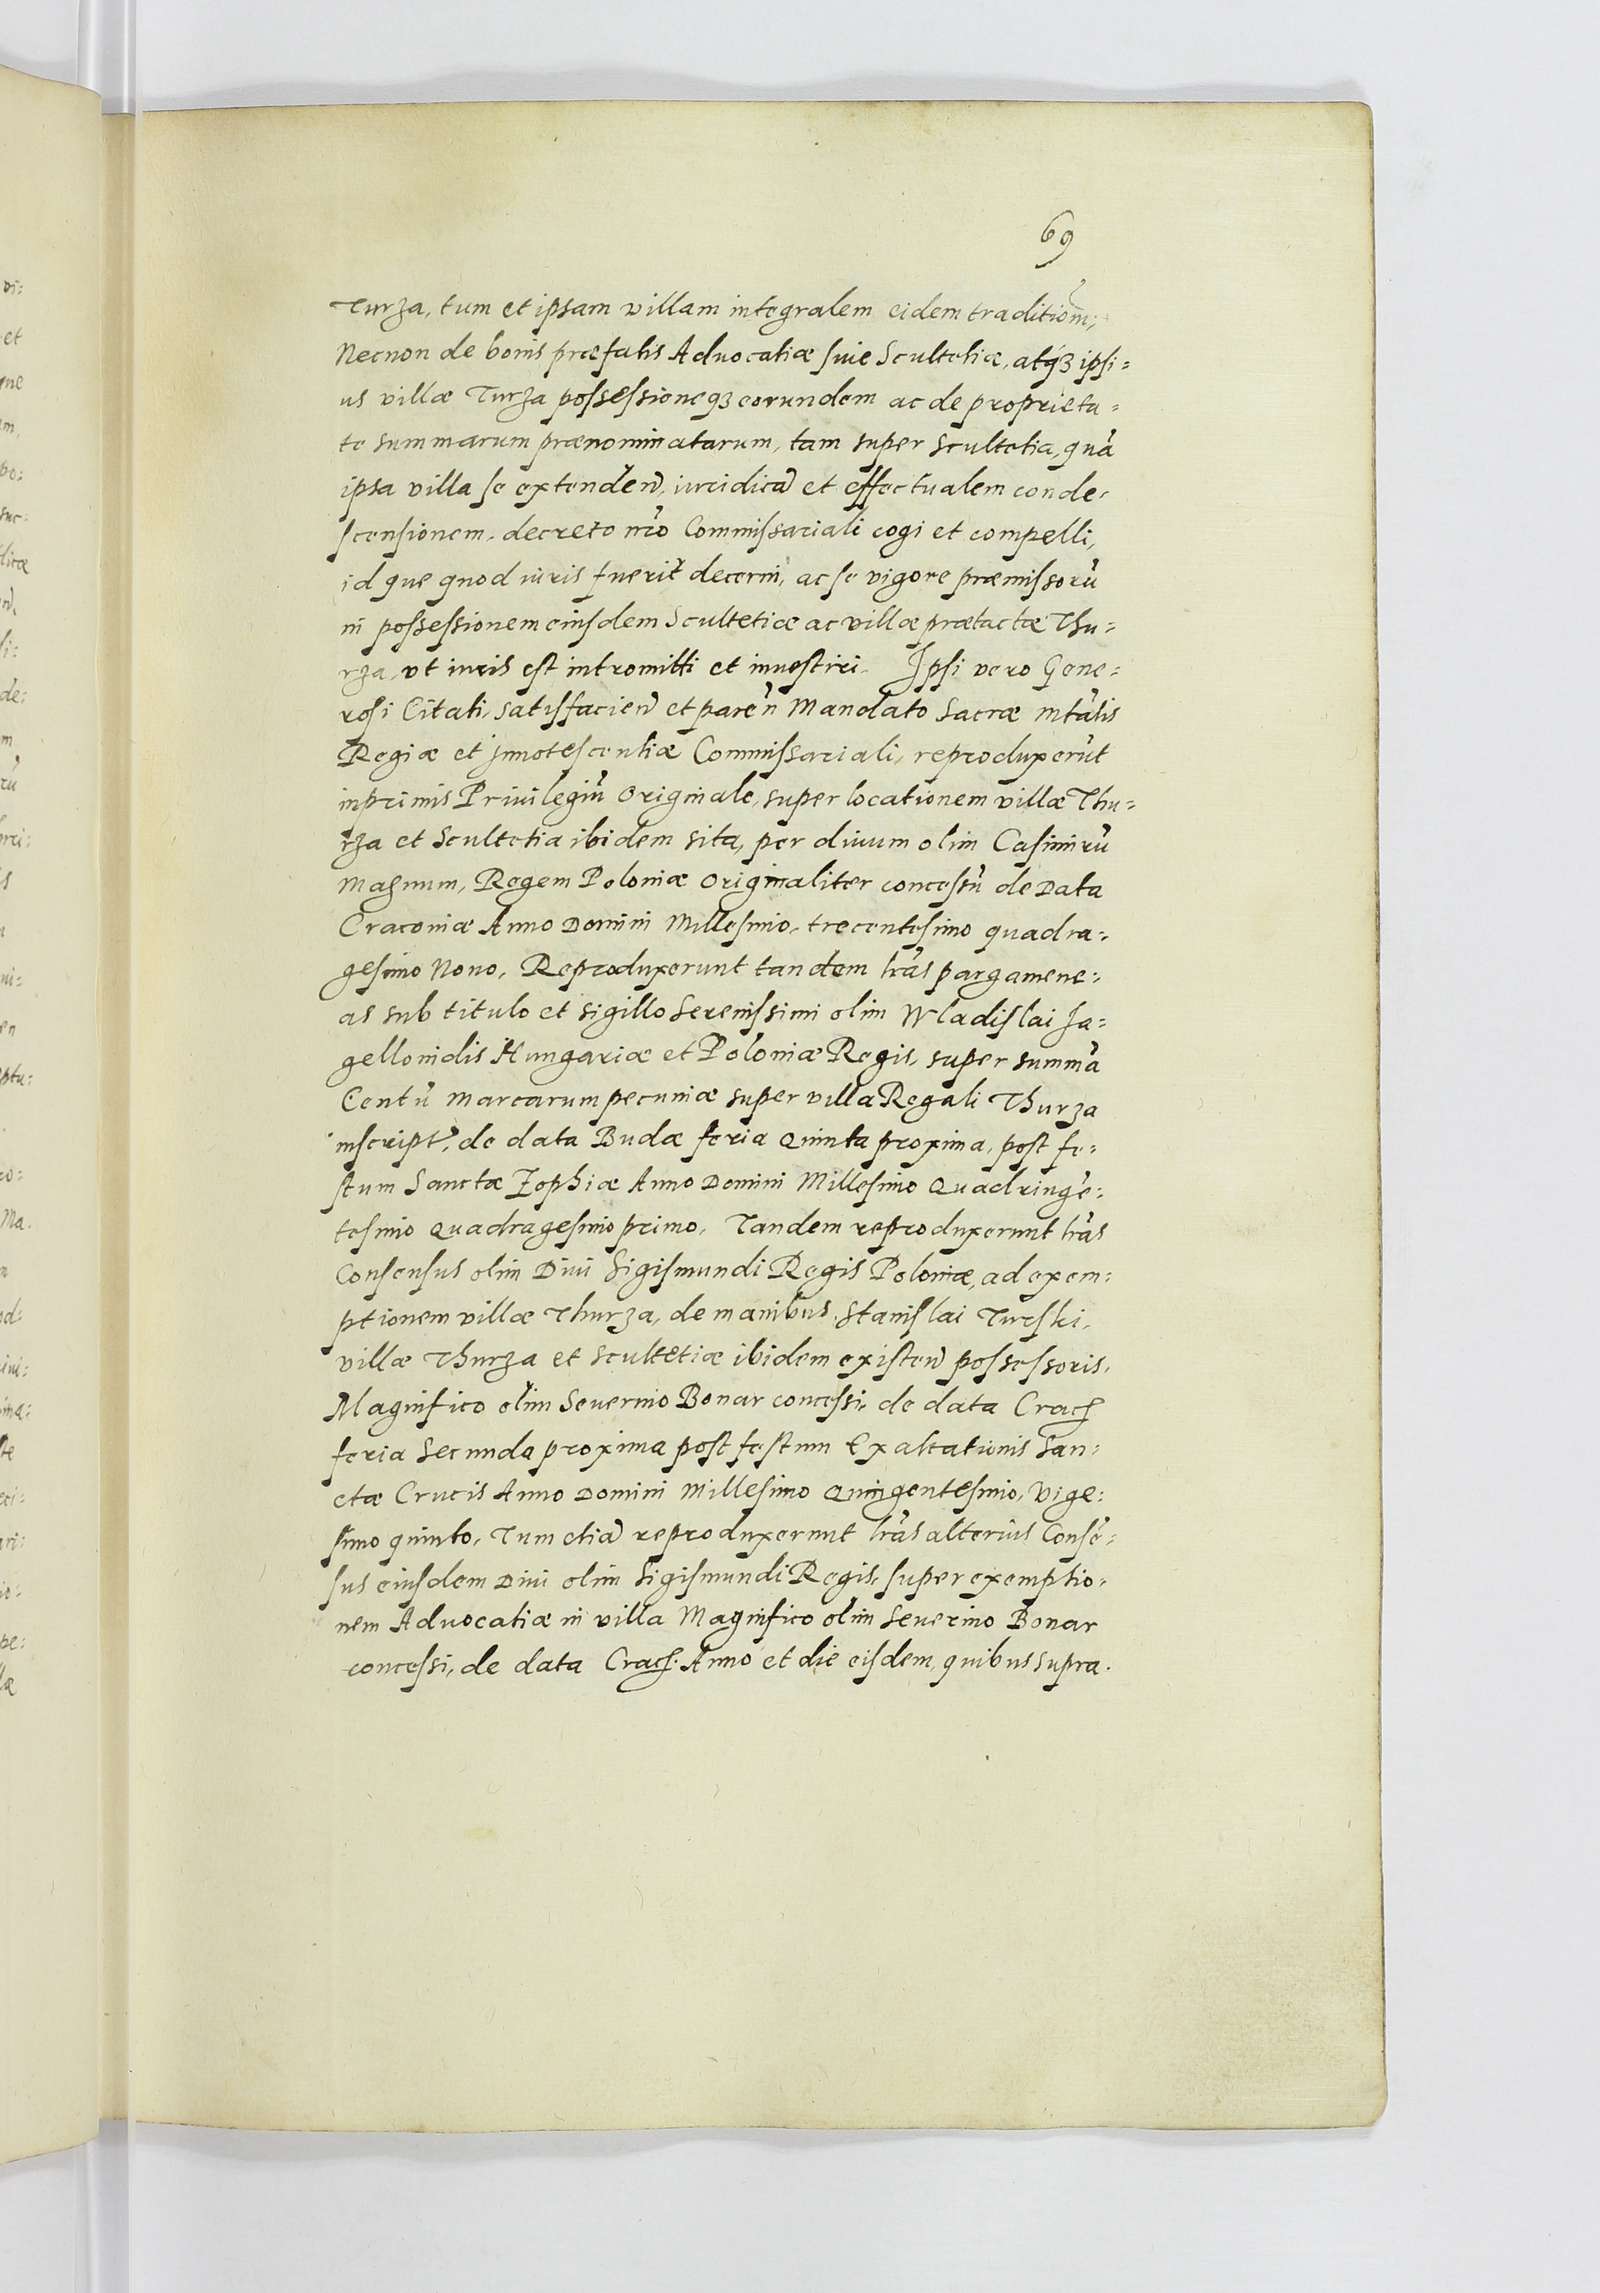 69
Turza, tum et ipsam villam integralem eidem traditiom̃,
Necnon de bonis præfatis Aduocatiæ siue Scultetiæ, atq3 ipsi=
us villæ Turza possessioneq3 eorundem ac de proprieta=
te summarum prænominatarum, tam super scultetia, quã
ipsa villa se extendeñ, iuridicã et effectualem conde=
scensionem, decreto nr̃o Commissariali cogi et compelli,
id que quod iuris fuerit decerni, ac se vigore præmissorũ
in possessionem eiusdem Scultetiæ ac villæ prætactæ Thu=
rza, vt iuris est intromitti et inuestiri. Ipsi vero Gene=
rosi Citati, satisfacieñ et pareñ Mandato Sacræ Mtãlis
Regiæ et Jnnotescentiæ Commissariali, reproduxerũt
inprimis Priuilegiũ Originale, super locationem villæ Thu=
rza et Scultetia ibidem sita, per diuum olim Casimirũ
Magnum, Regem Poloniæ Originaliter concessũ de Data
Cracouiæ Anno Domini Millesimo, trecentesimo quadra=
gesimo Nono, Reproduxerunt tandem lr̃as pargamene=
as sub titulo et sigillo Serenissimi olim Wladislai Ja=
gellonidis Hungariæ et Poloniæ Regis, super summã
Centũ Marcarum pecuniæ super villa Regali Thurza
inscript, de data Budæ feria Quinta proxima, post fe=
stum Sanctæ Zophiæ Anno Domini Millesimo Quadringẽ=
tesimo Quadragesimo primo, Tandem reproduxerunt lr̃as
Consensus olim Diui Sigismundi Regis Poloniæ, ad exem=
ptionem villæ Thurza, de manibus Stanislai Turski,
villæ Thurza et scultetiæ ibidem existeñ possessoris,
Magnifico olim Seuerino Bonar concessi, de data Crac̃
feria Secunda proxima post festum Exaltationis San=
ctæ Crucis Anno Domini Millesimo Quingentesimo, Vige=
simo quinto, Tum etiã reproduxerunt lr̃as alterius Consẽ=
sus eiusdem Diui olim Sigismundi Regis, super exemptio=
nem Aduocatiæ in villa Magnifico olim Seuerino Bonar
concessi, de data Crac̃. Anno et die eisdem, quibus supra.